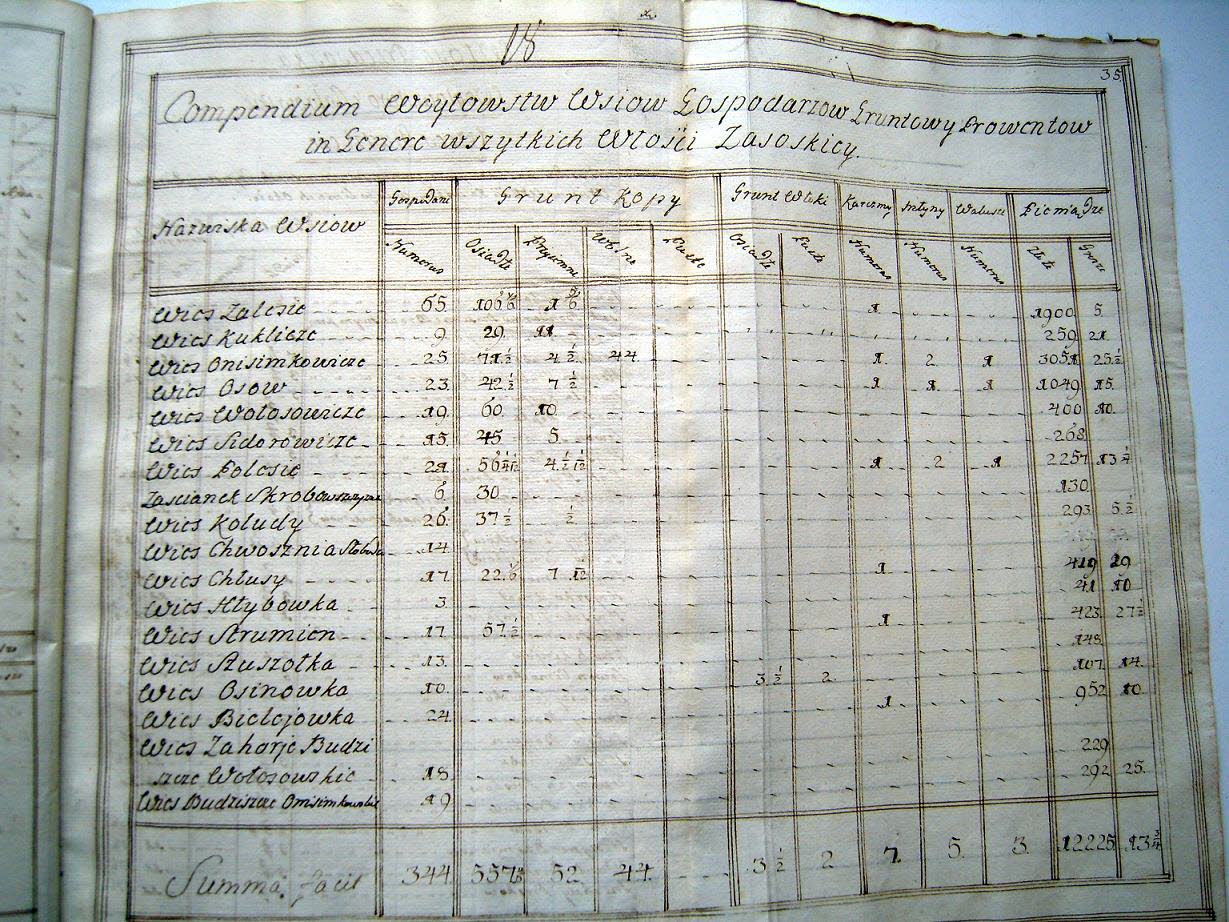 18
35
Compendium Woytowstw Wsiow Gospodarzow Gruntowy Prowentow
in Genere wszytkich Włości Zasoskiey.
Nazwiska Wsiow Gospodarze Grunt Kopy Grunt Włoki Karczmy Młyny Walusze Pieniądze
Numerus Osiadłe Przyiemne Wolne Puste Osiadłe Puste Numerus Numerus Numerus Złote Grosze
Wies Zalesie 65. 106 1/6 1 5/6 1 1900 5.
Wies Kuklicze 9 29. 11. 259 21
Wies Onisimkowicze 25. 71 1/2 4 1/2 44 1. 2 1 3051 25 1/2
Wies Osow 23. 42 1/2 7 1/2 1 1. 1 1049 15.
Wies Wołosowicze 19. 60. 10 400 10.
Wies Sidorowicze 15. 45 5. 268
Wies Polesie 21. 56 4 1 2 1 2257 13
Zascianek Skrobowszczyzna 6. 30 130
Wies Koludy 26. 37 1/2 1/2 293 5 1/2
Wies Chwosznia Słoboda 14.
Wies Chłusy 17. 22 1/6 7 1/12 1. 419 29
Wies Hłybowka 3. 41 10
Wies Strumien 17. 57 1/2 1 423. 27 1/2
Wies Szuszołka 13. 148.
Wies Osinowka 10. 3 1/2 2 107 14.
Wies Bielejowka 24 1. 952 10.
Wies Zaharje Budzi
szcze Wołosowskie 18. 229
Wies Budziszcze Onisimkowskie 19 292 25.
Summa facit 344. 557 52 44. 3 1/2 2 7. 5. 3. 12225 13 3/4